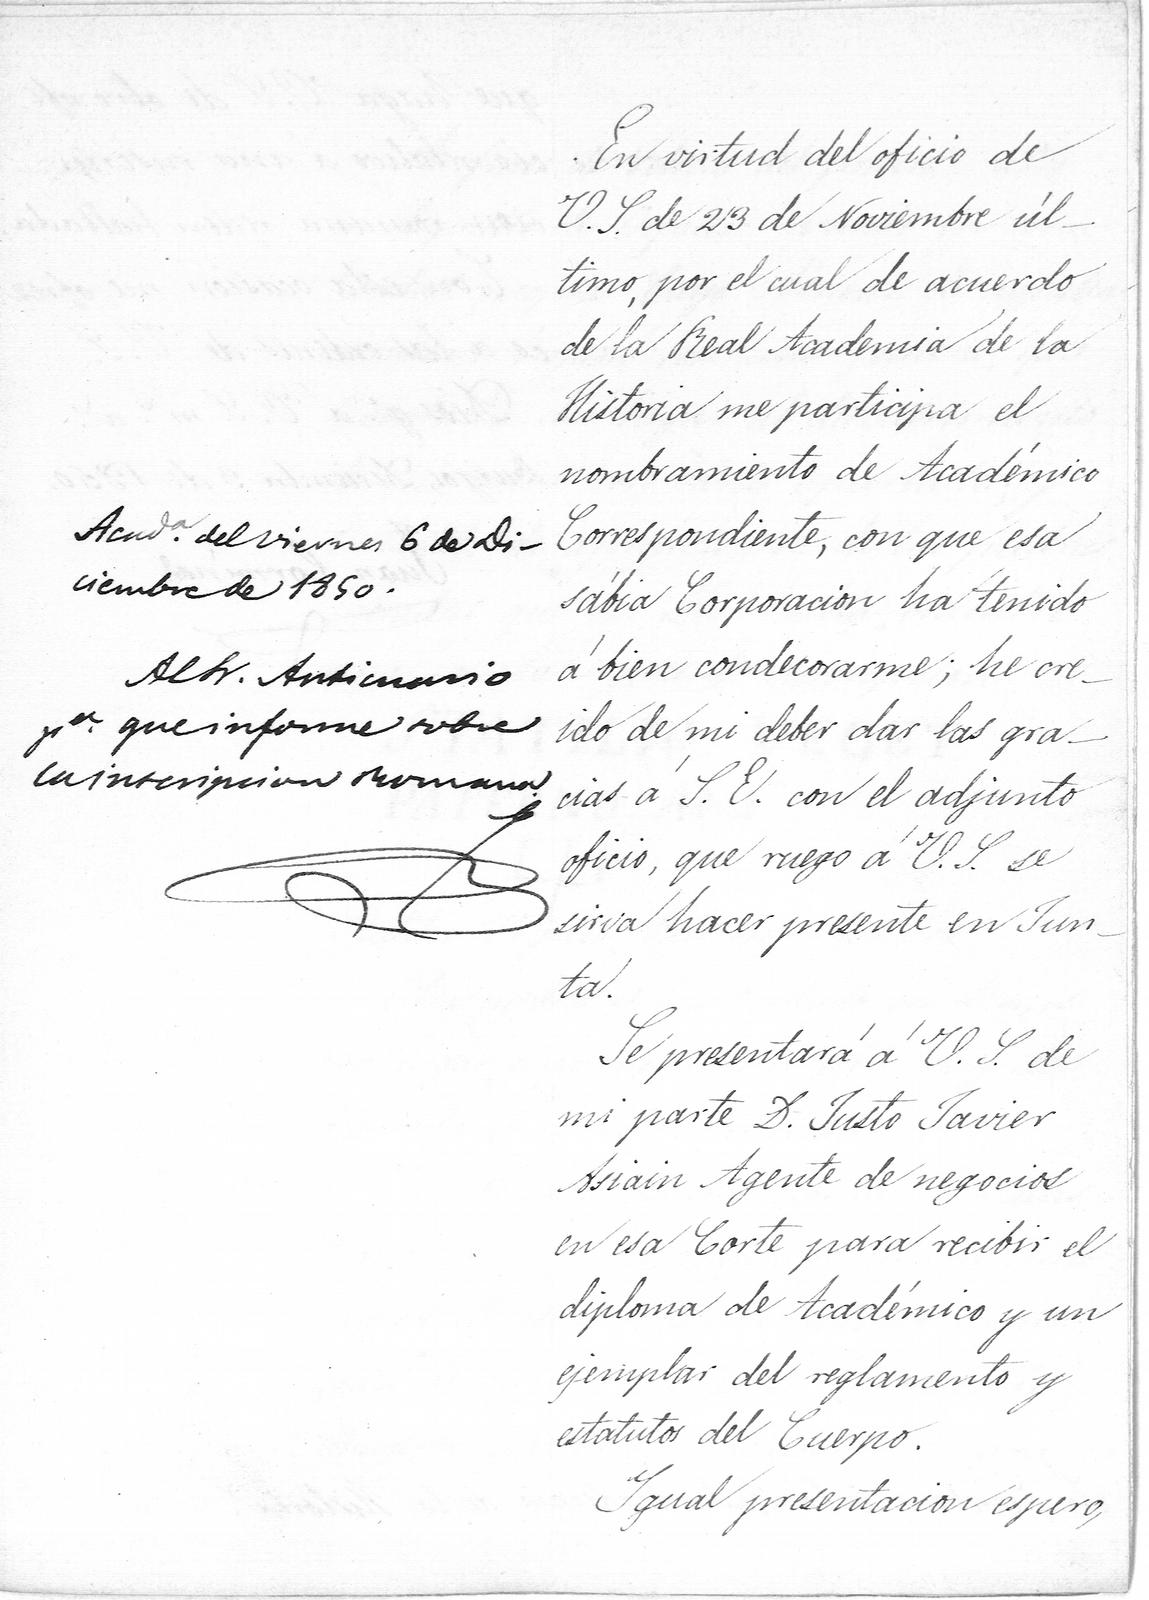 En virtud del oficio de
V. S. de 23 de Noviembre úl-
timo, por el cual de acuerdo
de la Real Academia de la
Historia me participa el
nombramiento de Académico
Correspondiente, con que esa
sábia Corporacion ha tenido
á bien condecorarme; he cre-
ido de mi deber dar las gra-
cias á S. E. con el adjunto
oficio, que ruego á V. S. se
sirva hacer presente en Jun-
ta.
Se presentará á V. S. de
mi parte D. Justo Javier
Asiain Agente de negocios
en esa Corte para recibir el
diploma de Académico y un
ejemplar del reglamento y
estatutos del Cuerpo.
Igual presentacion espero,
Acad.ª del viernes 6 de Di-
ciembre de 1850.
Al Sr. Anticuario
pª. que informe sobre
la inscripcion Romana.